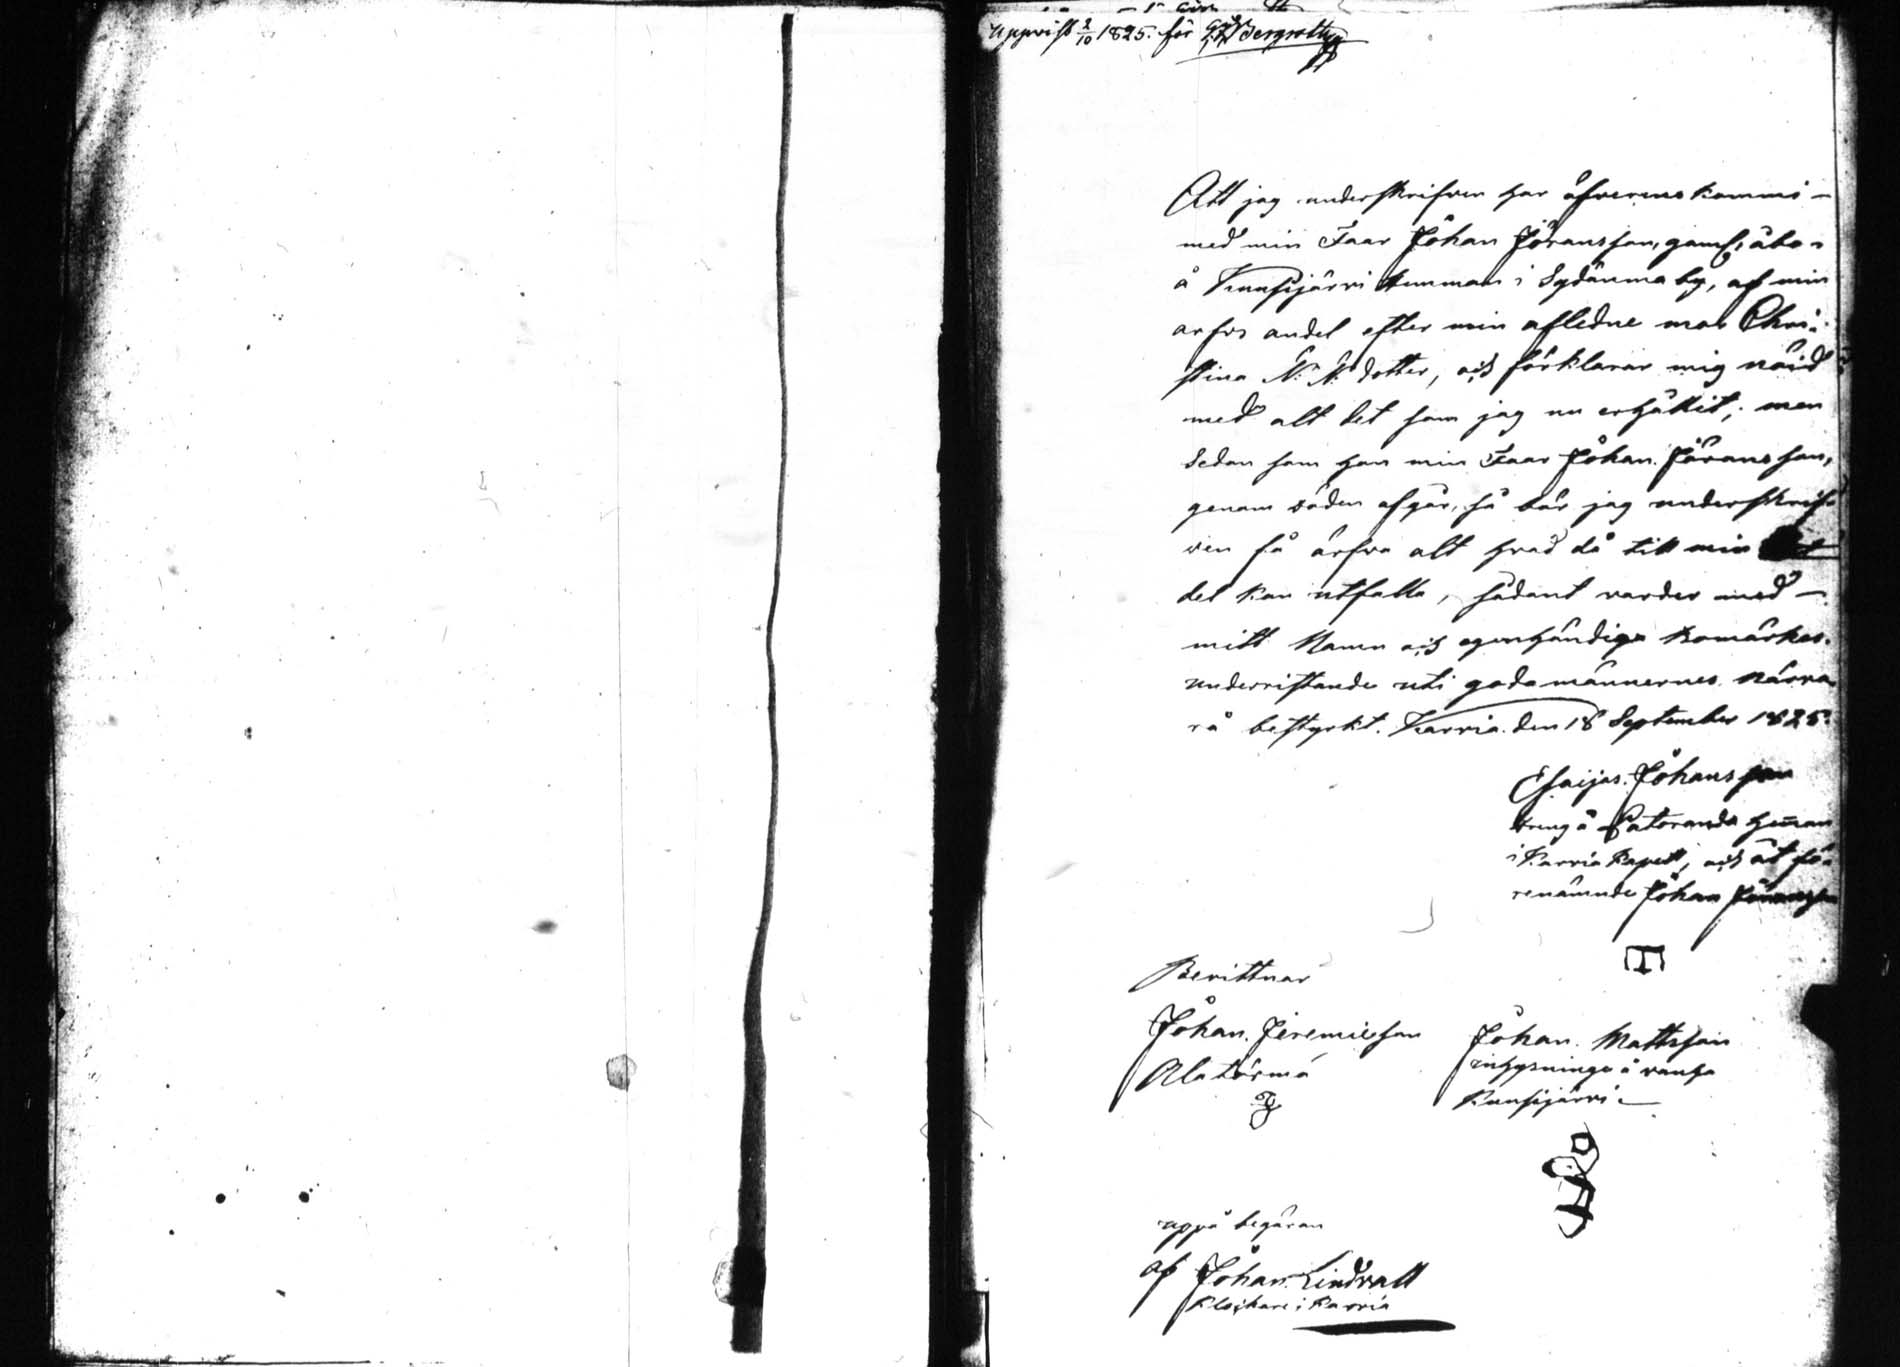 Uppvist 2/10 1825. för Bergroth
Att jag underskrifven har öfverens kommi-
med min Faar Johan Jöransson, gaml: åbo-
å Kuusijärvi Hemman i Sydänma by, af min
arfvs andel efter min afledne mor Chri-
stina N: N: dotter, och förklarar mig nöid
med alt det som jag nu erhållit; men
sedan som han min Faar Johan Jöransson,
genom döden afgår, så bör jag underskrif-
ven få ärfva alt hvad då till min
det kan utfalla, sådant varder med-
mitt Namn och egenhändiga bomärkes.
undervistande uti goda männernes närva-
rå bestyrkt. Karvia den 18 September 1825.
Esaijas Johansson
dreng å Hemman
i Karvia Kapell, och åt fö-
renämnde Johan Jöransson
Bevittnar
Johan Jeremiesson
Alatörmä
Johan Mattsson
inhysninge å
Kuusijärvi
uppå begäran
af Johan Lindvall
klockare i Karvia